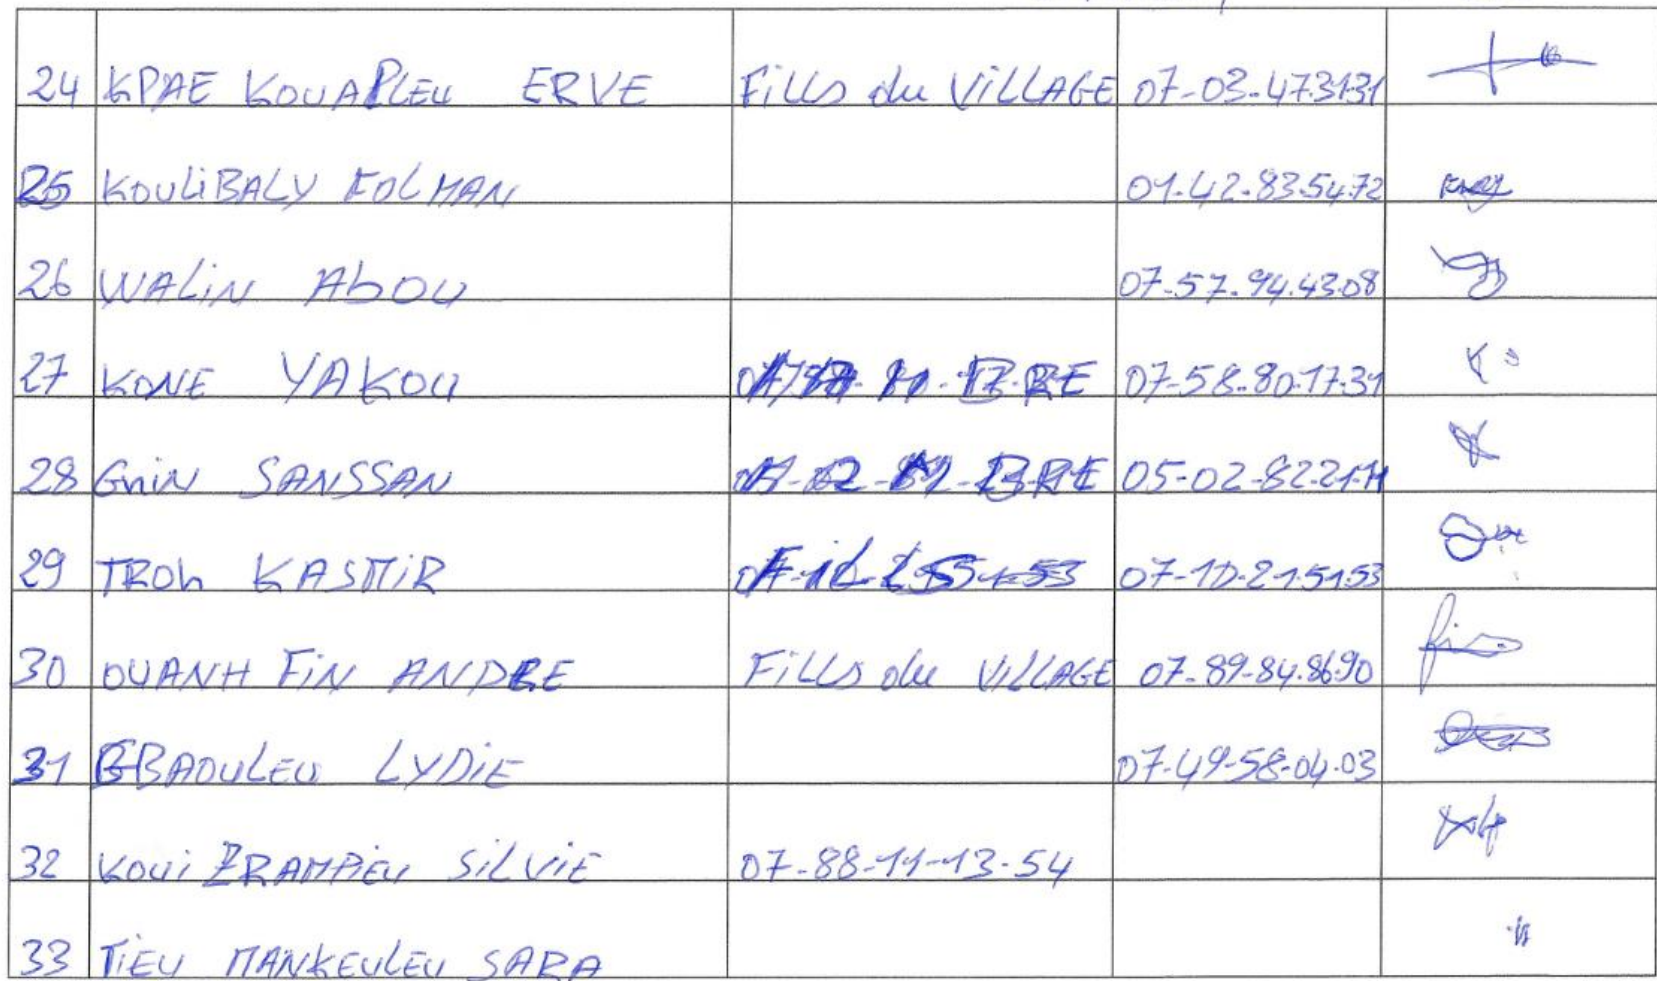 24 KPAE KOUAPLEU ERVE Fills du VILLAGE 07-03-47.31.31
25 KOULIBALY FOLMAN 01-42-83.54.72
26 WALIN AbOU 07-57.94.43.08
27 KONE YAKOU 07-58-80.17.31
28 GniN SANSSAN 05-02-82.21.
29 TROh KASMIR 07-10-21.51.53
30 OUANH FiN ANDRE Fills du VILLAGE 07-89-84.86.90
31 GBAOULEU LYDIE 07-49-58-04-03
32 KOUI ZRAMPIEU SILVIE 07-88-11-13-54
33 TIEU MANKEULEU SARA